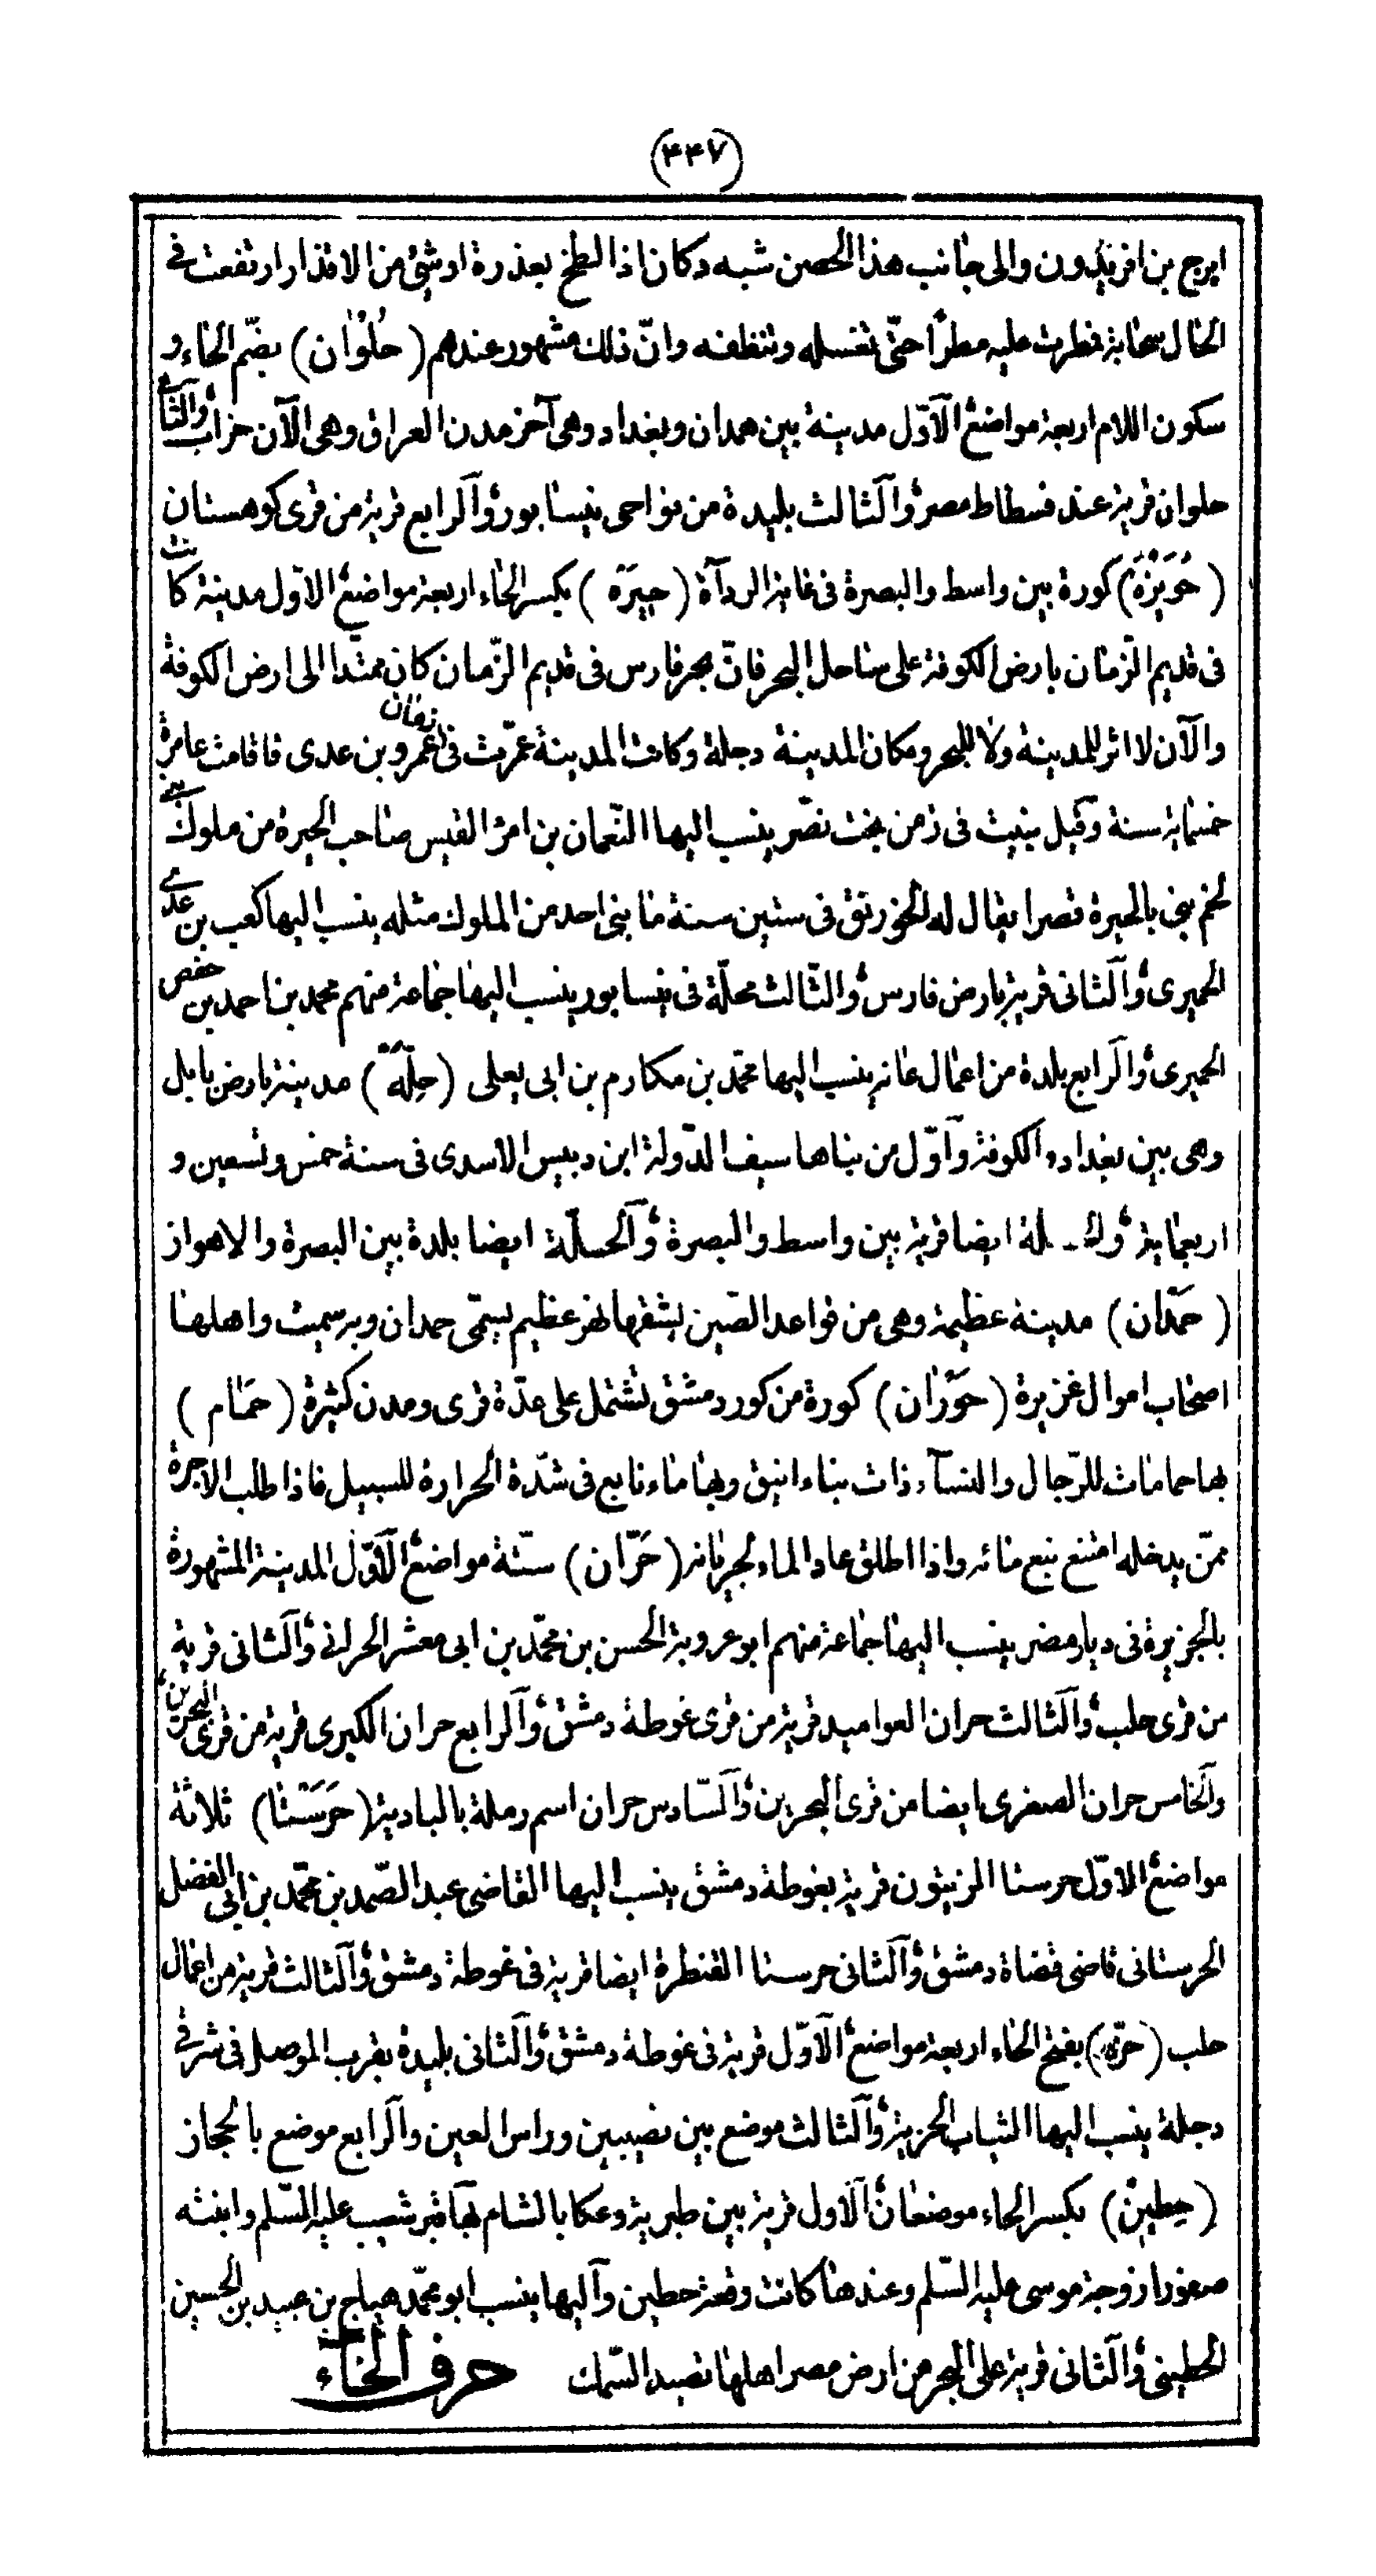 (٤٤٧)
ايرج بن افريذون والى جانب هذا الحصن شبه دكان اذا لطخ بعذرة او شئ من الاقذار ارتفعت فى
الحال سحابة فطرت عليه مطراً حتّى تغسله وتنظفه وانّ ذلك مشهور عندهم (حُلْوان) بضّم الحاء و
سكون اللام اربعة مواضع الآوّل مدينة بين همدان وبغداد وهى آخر مدن العراق وهى الآن خراب والثانى
حلوان قرية عند فسطاط مصر والثالث بليدة من نواحى نيسابور والرابع قرية من قرى كوهستان
(حُوَيْزَة) كورة بين واسط والبصرة فى غاية الردآة (حيرَة) بكسر الحاء اربعة مواضع الاوّل مدينة كانت
فى قديم الزّمان بارض الكوفة على ساحل البحر فانّ بحر فارس فى قديم الزّمان كان ممتّدا الى ارض الكوفة
والآن لا اثر للمدينة ولا للبحر ومكان المدينة دجلة وكانت المدينة عمّرت فى زمان عمرو بن عدى فاقامت عامرة
خمسماية سنة وقيل بنيت فى زمن بخت نصّر ينسب اليها النّعمان بن امرؤ القيس صاحب الحيرة من ملوك بنى
لخم بنى بالحيرة قصرا يقال له الخورنق فى ستين سنة ما بنى احد من الملوك مثله ينسب اليها كعب بن عدى
الحيرى والثانى قرية بارض فارس والثالث محلّة فى نيسابور ينسب اليها جماعة منهم محمد بن احمد بن حفص
الحيرى والرابع بلدة من اعمال عانه ينسب اليها محمّد بن مكارم بن ابى يعلى (حِلَّة) مدينة بارض بابل
وهى بين بغداد والكوفة وآوّل من بناها سيف الدّولة ابن دبيس الاسدى فى سنة خمس وتسعين و
اربعماية ـلة ايضا قرية بين واسط والبصرة والحلّة ايضا بلدة بين البصرة والاهواز
(حَمْدَان) مدينة عظيمة وهى من قواعد الصّين يشقها نهر عظيم يسمّى حمدان وبه سميت واهلها
اصحاب اموال غزيرة (حَوْرَان) كورة من كور دمشق تشتمل على عدّة قرى ومدن كثيرة (حَمّام)
بها حمامات للرّجال والنسآء ذات بناء انيق وبها ماء نابع فى شدّة الحرارة للسبيل فاذا طلب الاجرة
ممّن يدخله امتنع نبع مائه واذا اطلق عاد الماء لجريانه (حَرّان) ستّة مواضع الآوّل المدينة المشهورة
بالجزيرة فى ديار مضر ينسب اليها جماعة منهم ابو عروبة الحسن بن محمّد بن ابى معشر الحرانى والثانى قرية
من قرى حلب والثالث حران العواميد قرية من قرى غوطة دمشق والرابع حران الكبرى قرية من قرى البحرين
والخامس حران الصغرى ايضا من قرى البحرين والسّادس حران اسم رملة بالبادية (حَرَسْتا) ثلاثة
مواضع الاوّل حرستا الزيتون قرية بغوطة دمشق ينسب اليها القاضى عبد الصّمد بن محمّد بن ابى الفضل
الحرستانى قاضى قضاة دمشق والثانى حرستا القنطرة ايضا قرية فى غوطة دمشق والثالث قرية من اعمال
حلب (حزّه) بفتح الحاء اربعة مواضع الآوّل قرية فى غوطة دمشق والثانى بليدة بقرب الموصل فى شرقى
دجلة ينسب اليها الثياب الحزية والثالث موضع بين نصيبين وراس العين والرابع موضع بالحجاز
(حِطين) بكسر الحاء موضعان الآول قرية بين طبرية وعكا بالشام بها قبر شعيب عليه السّلم وابنته
صفورا زوجة موسى عليه السّلم وعندها كانت وقعة حطين وآليها ينسب ابو محمّد هياج بن عبيد بن الحسين
الحطينى والثانى قرية على البحر من ارض مصر اهلها تصيد السّمك حرف الخآء